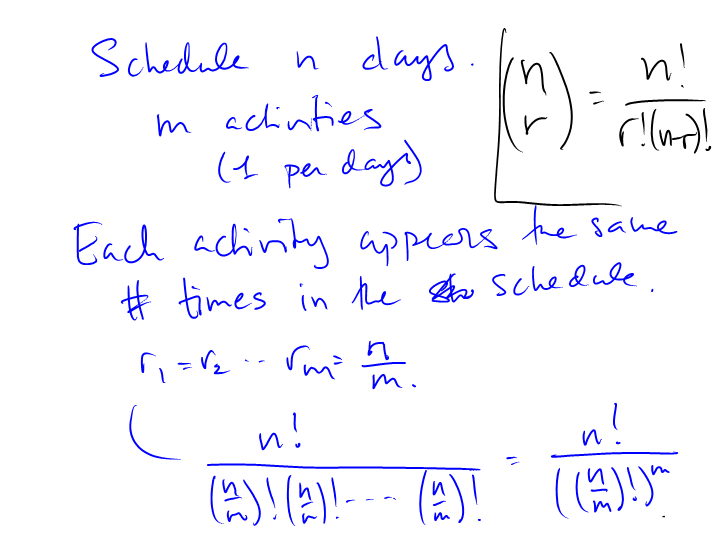 Schedule n days.
m activities
(1 per days)
(n r) = n! / r!(n-r)!
Each activity appears the same
# times in the schedule.
r₁ = r₂ ... rm = n/m.
n! / (n/m)!(n/m)! ---- (n/m)! = n! / ((n/m)!)^m